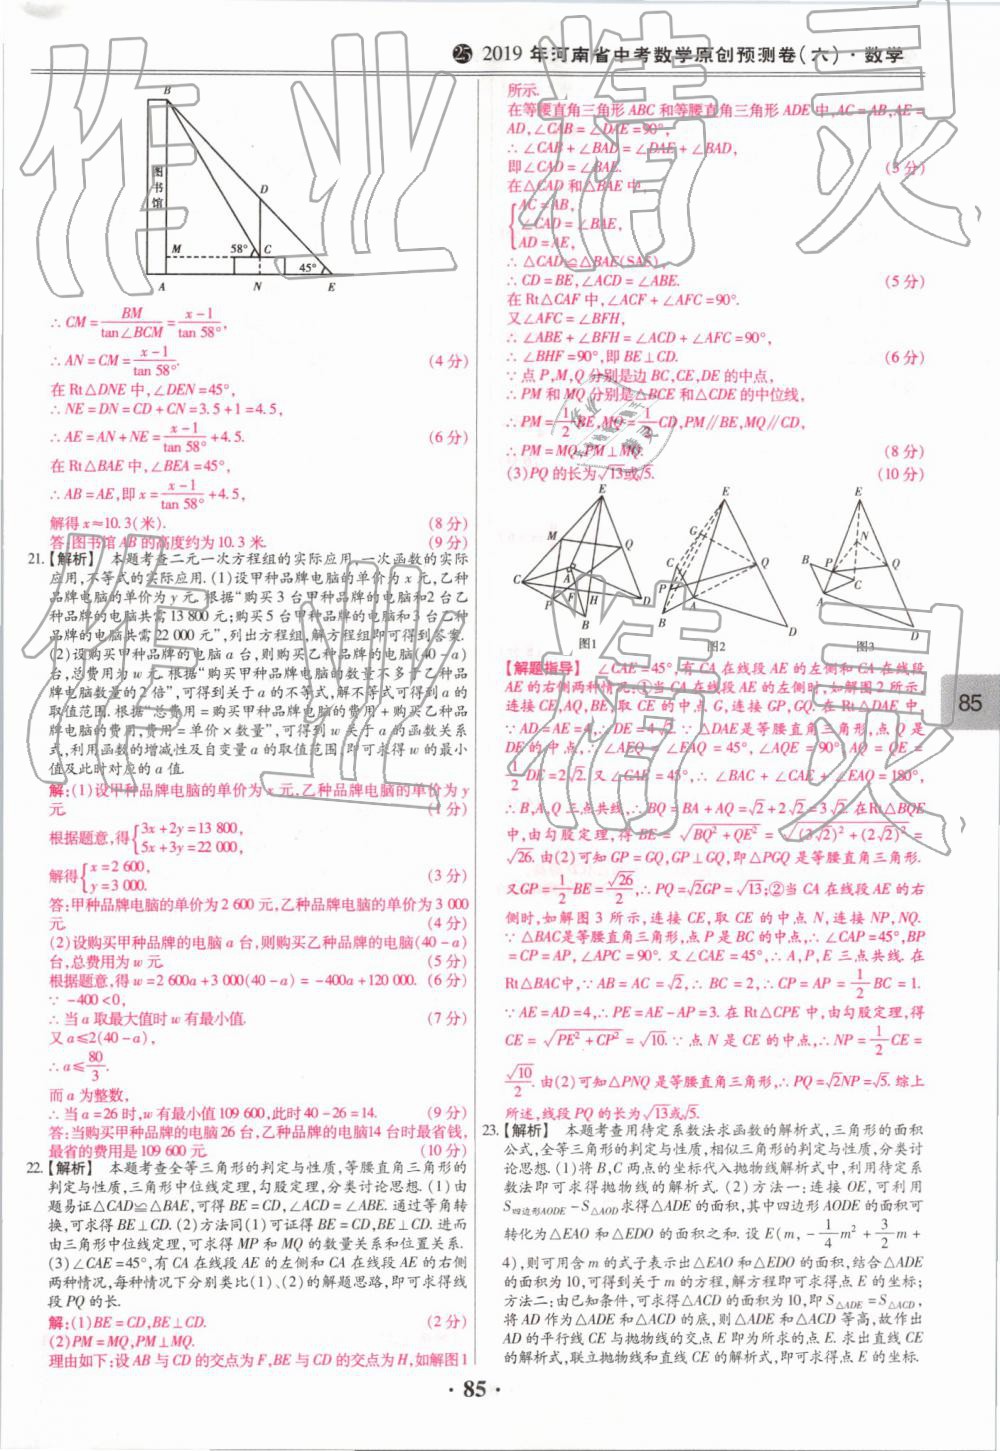 ㉕ 2019 年河南省中考数学原创预测卷(六)·数学
B
图书馆
D
M 58° C
45°
A N E
∴ CM = BM/tan∠BCM = (x-1)/tan 58°,
∴ AN = CM = (x-1)/tan 58°. (4 分)
在 Rt△DNE 中,∠DEN = 45°,
∴ NE = DN = CD + CN = 3.5 + 1 = 4.5,
∴ AE = AN + NE = (x-1)/tan 58° + 4.5. (6 分)
在 Rt△BAE 中,∠BEA = 45°,
∴ AB = AE,即 x = (x-1)/tan 58° + 4.5,
解得 x≈10.3(米). (8 分)
答:图书馆 AB 的高度约为 10.3 米. (9 分)
21.【解析】 本题考查二元一次方程组的实际应用,一次函数的实际
应用,不等式的实际应用.(1)设甲种品牌电脑的单价为 x 元,乙种
品牌电脑的单价为 y 元.根据“购买 3 台甲种品牌的电脑和2 台乙
种品牌的电脑共需 13 800 元;购买 5 台甲种品牌的电脑和 3 台乙种
品牌的电脑共需 22 000 元”,列出方程组,解方程组即可得到答案.
(2)设购买甲种品牌的电脑 a 台,则购买乙种品牌的电脑(40 - a)
台,总费用为 w 元.根据“购买甲种品牌电脑的数量不多于乙种品
牌电脑数量的 2 倍”,可得到关于 a 的不等式,解不等式可得到 a 的
取值范围.根据“总费用 = 购买甲种品牌电脑的费用 + 购买乙种品
牌电脑的费用,费用 = 单价 × 数量”,可得到 w 关于 a 的函数关系
式,利用函数的增减性及自变量 a 的取值范围,即可求得 w 的最小
值及此时对应的 a 值.
解:(1)设甲种品牌电脑的单价为 x 元,乙种品牌电脑的单价为 y
元. (1 分)
根据题意,得{3x + 2y = 13 800,
5x + 3y = 22 000,
解得{x = 2 600,
y = 3 000. (3 分)
答:甲种品牌电脑的单价为 2 600 元,乙种品牌电脑的单价为 3 000
元. (4 分)
(2)设购买甲种品牌的电脑 a 台,则购买乙种品牌的电脑(40 - a)
台,总费用为 w 元. (5 分)
根据题意,得 w = 2 600a + 3 000(40 - a) = -400a + 120 000. (6 分)
∵ -400 < 0,
∴ 当 a 取最大值时 w 有最小值. (7 分)
又 a≤2(40 - a),
∴ a≤80/3.
而 a 为整数,
∴ 当 a = 26 时,w 有最小值 109 600,此时 40 - 26 = 14. (9 分)
答:当购买甲种品牌的电脑 26 台,乙种品牌的电脑14 台时最省钱,
最省的费用是 109 600 元. (10 分)
22.【解析】 本题考查全等三角形的判定与性质,等腰直角三角形的
判定与性质,三角形中位线定理,勾股定理,分类讨论思想.(1)由
题易证△CAD≌△BAE,可得 BE = CD,∠ACD = ∠ABE.通过等角转
换,可求得 BE⊥CD.(2)方法同(1)可证得 BE = CD,BE⊥CD.进而
由三角形中位线定理,可求得 MP 和 MQ 的数量关系和位置关系.
(3)∠CAE = 45°,有 CA 在线段 AE 的左侧和 CA 在线段 AE 的右侧
两种情况,每种情况下分别类比(1)、(2)的解题思路,即可求得线
段 PQ 的长.
解:(1)BE = CD,BE⊥CD. (2 分)
(2)PM = MQ,PM⊥MQ.
理由如下:设 AB 与 CD 的交点为 F,BE 与 CD 的交点为 H,如解图 1
所示.
在等腰直角三角形 ABC 和等腰直角三角形 ADE 中,AC = AB,AE =
AD,∠CAB = ∠DAE = 90°,
∴ ∠CAB + ∠BAD = ∠DAE + ∠BAD,
即∠CAD = ∠BAE. (3 分)
在△CAD 和△BAE 中,
{AC = AB,
∠CAD = ∠BAE,
AD = AE,
∴ △CAD≌△BAE(SAS),
∴ CD = BE,∠ACD = ∠ABE. (5 分)
在 Rt△CAF 中,∠ACF + ∠AFC = 90°.
又∠AFC = ∠BFH,
∴ ∠ABE + ∠BFH = ∠ACD + ∠AFC = 90°,
∴ ∠BHF = 90°,即 BE⊥CD. (6 分)
∵ 点 P,M,Q 分别是边 BC,CE,DE 的中点,
∴ PM 和 MQ 分别是△BCE 和△CDE 的中位线,
∴ PM = 1/2 BE,MQ = 1/2 CD,PM∥BE,MQ∥CD,
∴ PM = MQ,PM⊥MQ. (8 分)
(3)PQ 的长为√13或√5. (10 分)
E M Q C A F H P D B 图1
E G C Q P A B D 图2
E N B P Q C A D 图3
【解题指导】 ∠CAE = 45°,有 CA 在线段 AE 的左侧和 CA 在线段
AE 的右侧两种情况:①当 CA 在线段 AE 的左侧时,如解图 2 所示,
连接 CE,AQ,BE,取 CE 的中点 G,连接 GP,GQ.在 Rt△DAE 中,
∵ AD = AE = 4,∴ DE = 4√2.∵ △DAE是等腰直角三角形,点 Q 是
DE 的中点,∴ ∠AEQ = ∠EAQ = 45°,∠AQE = 90°,AQ = QE =
1/2 DE = 2√2.又∠CAE = 45°,∴ ∠BAC + ∠CAE + ∠EAQ = 180°,
∴ B,A,Q 三点共线,∴ BQ = BA + AQ = √2 + 2√2 = 3√2.在 Rt△BQE
中,由勾股定理,得 BE = √(BQ² + QE²) = √((3√2)² + (2√2)²) =
√26.由(2)可知 GP = GQ,GP⊥GQ,即△PGQ 是等腰直角三角形.
又GP = 1/2 BE = √26/2,∴ PQ = √2GP = √13;②当 CA 在线段 AE 的右
侧时,如解图 3 所示,连接 CE,取 CE 的中点 N,连接 NP,NQ.
∵ △BAC是等腰直角三角形,点 P 是 BC 的中点,∴ ∠CAP = 45°,BP
= CP = AP,∠APC = 90°.又∠CAE = 45°,∴ A,P,E 三点共线.在
Rt△BAC中,∵ AB = AC = √2,∴ BC = 2,∴ CP = AP = 1/2 BC = 1.
∵ AE = AD = 4,∴ PE = AE - AP = 3.在 Rt△CPE 中,由勾股定理,得
CE = √(PE² + CP²) = √10.∵ 点 N 是 CE 的中点,∴ NP = 1/2 CE =
√10/2.由(2)可知△PNQ 是等腰直角三角形,∴ PQ = √2NP = √5.综上
所述,线段 PQ 的长为√13或√5.
23.【解析】 本题考查用待定系数法求函数的解析式,三角形的面积
公式,全等三角形的判定与性质,相似三角形的判定与性质,分类讨
论思想.(1)将 B,C 两点的坐标代入抛物线解析式中,利用待定系
数法即可求得抛物线的解析式.(2)方法一:连接 OE,可利用
S四边形AODE - S△AOD求得△ADE 的面积,其中四边形 AODE 的面积可
转化为△EAO 和△EDO 的面积之和.设 E(m, -1/4 m² + 3/2 m +
4),则可用含 m 的式子表示出△EAO 和△EDO 的面积,结合△ADE
的面积为 10,可得到关于 m 的方程,解方程即可求得点 E 的坐标;
方法二:由已知条件,可求得△ACD 的面积为 10,即 S△ADE = S△ACD,
将 AD 作为△ADE 和△ACD 的底,则△ADE 和△ACD 等高,故作出
AD 的平行线 CE 与抛物线的交点 E 即为所求的点 E.求出直线 CE
的解析式,联立抛物线和直线 CE 的解析式,即可求得点 E 的坐标.
85
· 85 ·
作业精灵
作业精灵